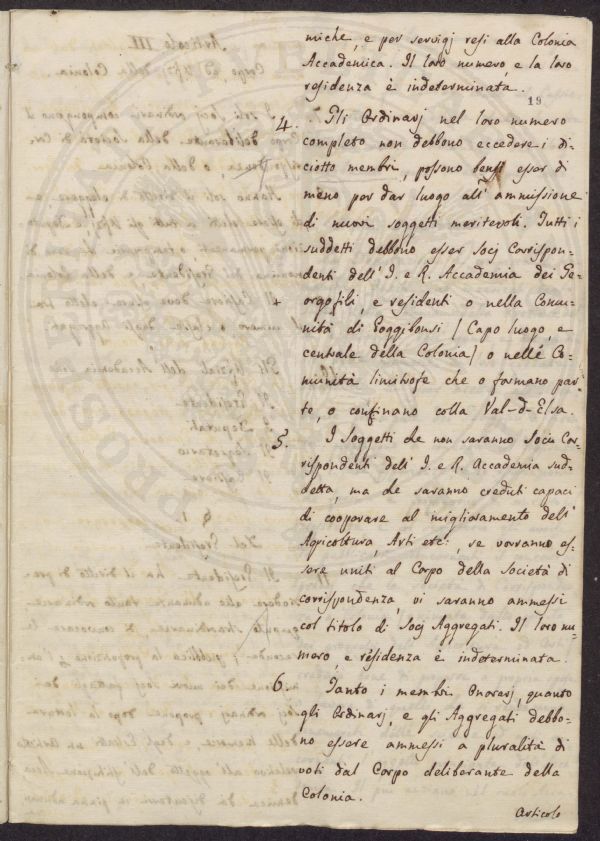 miche, e per servigj resi alla Colonia
Accademica. Il loro numero, e la loro
residenza è indeterminata.
19
4. Gli Ordinarj nel loro numero
completo non debbono eccedere i di=
ciotto membri, possono bensì esser di
meno per dar luogo all' ammissione
di nuovi soggetti meritevoli. Tutti i
suddetti debbono esser Socj Corrispon=
denti dell' I. e R. Accademia dei Ge=
orgofili, e residenti o nella Comu=
nità di Poggibonsi (Capo luogo, e
centrale della Colonia) o nelle Co=
munità limitrofe che o formano par
te, o confinano colla Val-d-Elsa.
5. I Soggetti che non saranno Socii Cor=
rispondenti dell' I. e R. Accademia sud=
detta, ma che saranno creduti capaci
di cooperare al miglioramento dell'
Agricoltura, Arti etc:, se vorranno es=
sere uniti al Corpo della Società di
corrispondenza, vi saranno ammessi
col titolo di Socj Aggregati. Il loro nu=
mero, e residenza è indeterminata.
6. Tanto i membri Onorarj, quanto
gli Ordinarj, e gli Aggregati debbo=
no essere ammessi a pluralità di
voti dal Corpo deliberante della
Colonia.
Articolo